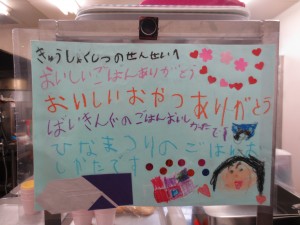 きゅうしょくしつのせんせいへ
おいしいごはんありがとう
おいしいおやつありがとう
ばいきんぐのごはんおいしかたです
ひなまつりのごはんお
しかたです